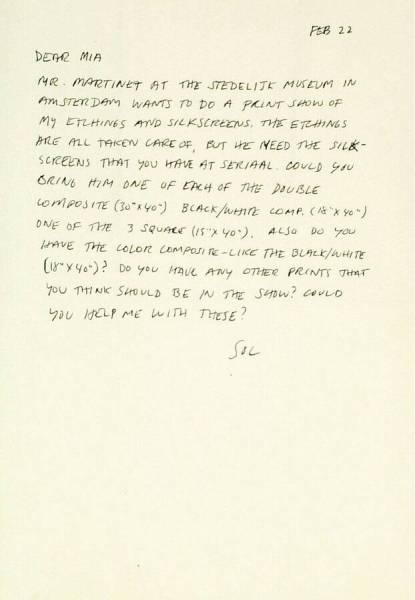 FEB 22
DEAR MIA
MR. MARTINET AT THE STEDELIJK MUSEUM IN
AMSTERDAM WANTS TO DO A PRINT SHOW OF
MY ETCHINGS AND SILKSCREENS. THE ETCHINGS
ARE ALL TAKEN CARE OF, BUT HE NEED THE SILK-
SCREENS THAT YOU HAVE AT SERIAAL. COULD YOU
BRING HIM ONE OF EACH OF THE DOUBLE
COMPOSITE (30"X40") BLACK/WHITE COMP. (18"X40")
ONE OF THE 3 SQUARE (15"X40"). ALSO DO YOU
HAVE THE COLOR COMPOSITE-LIKE THE BLACK/WHITE
(18"X40")? DO YOU HAVE ANY OTHER PRINTS THAT
YOU THINK SHOULD BE IN THE SHOW? COULD
YOU HELP ME WITH THESE?
SOL